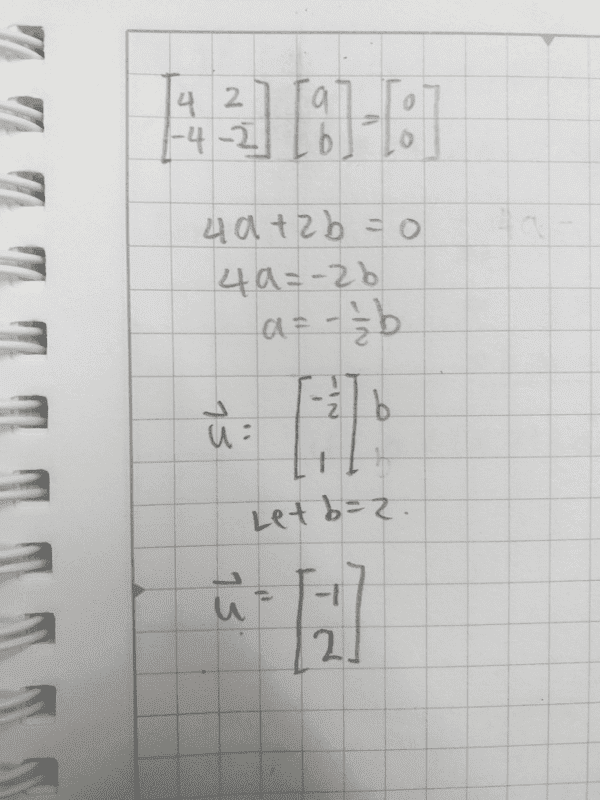 [4 2; -4 -2] [a; b] = [0; 0]
4a + 2b = 0
4a = -2b
a = -1/2 b
u⃗ = [-1/2; 1] b
Let b = 2.
u⃗ = [-1; 2]